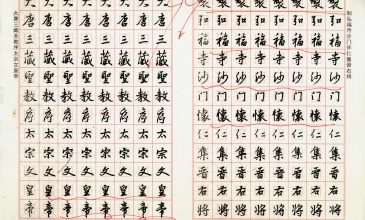 制弘福寺沙门怀仁集晋右将
製弘福寺沙门懷仁集晉右將
製弘福寺沙门懷仁集晉右將
製弘福寺沙门懷仁集晉右將
製弘福寺沙门懷仁集晉右將
製弘福寺沙门懷仁集晉右將
製弘福寺沙门懷仁集晉右將
大唐三藏聖教序太宗文皇帝
大唐三藏聖教序太宗文皇帝
大唐三藏聖教序太宗文皇帝
大唐三藏聖教序太宗文皇帝
大唐三藏聖教序太宗文皇帝
大唐三藏聖教序太宗文皇帝
大唐三藏圣教序太宗文皇帝